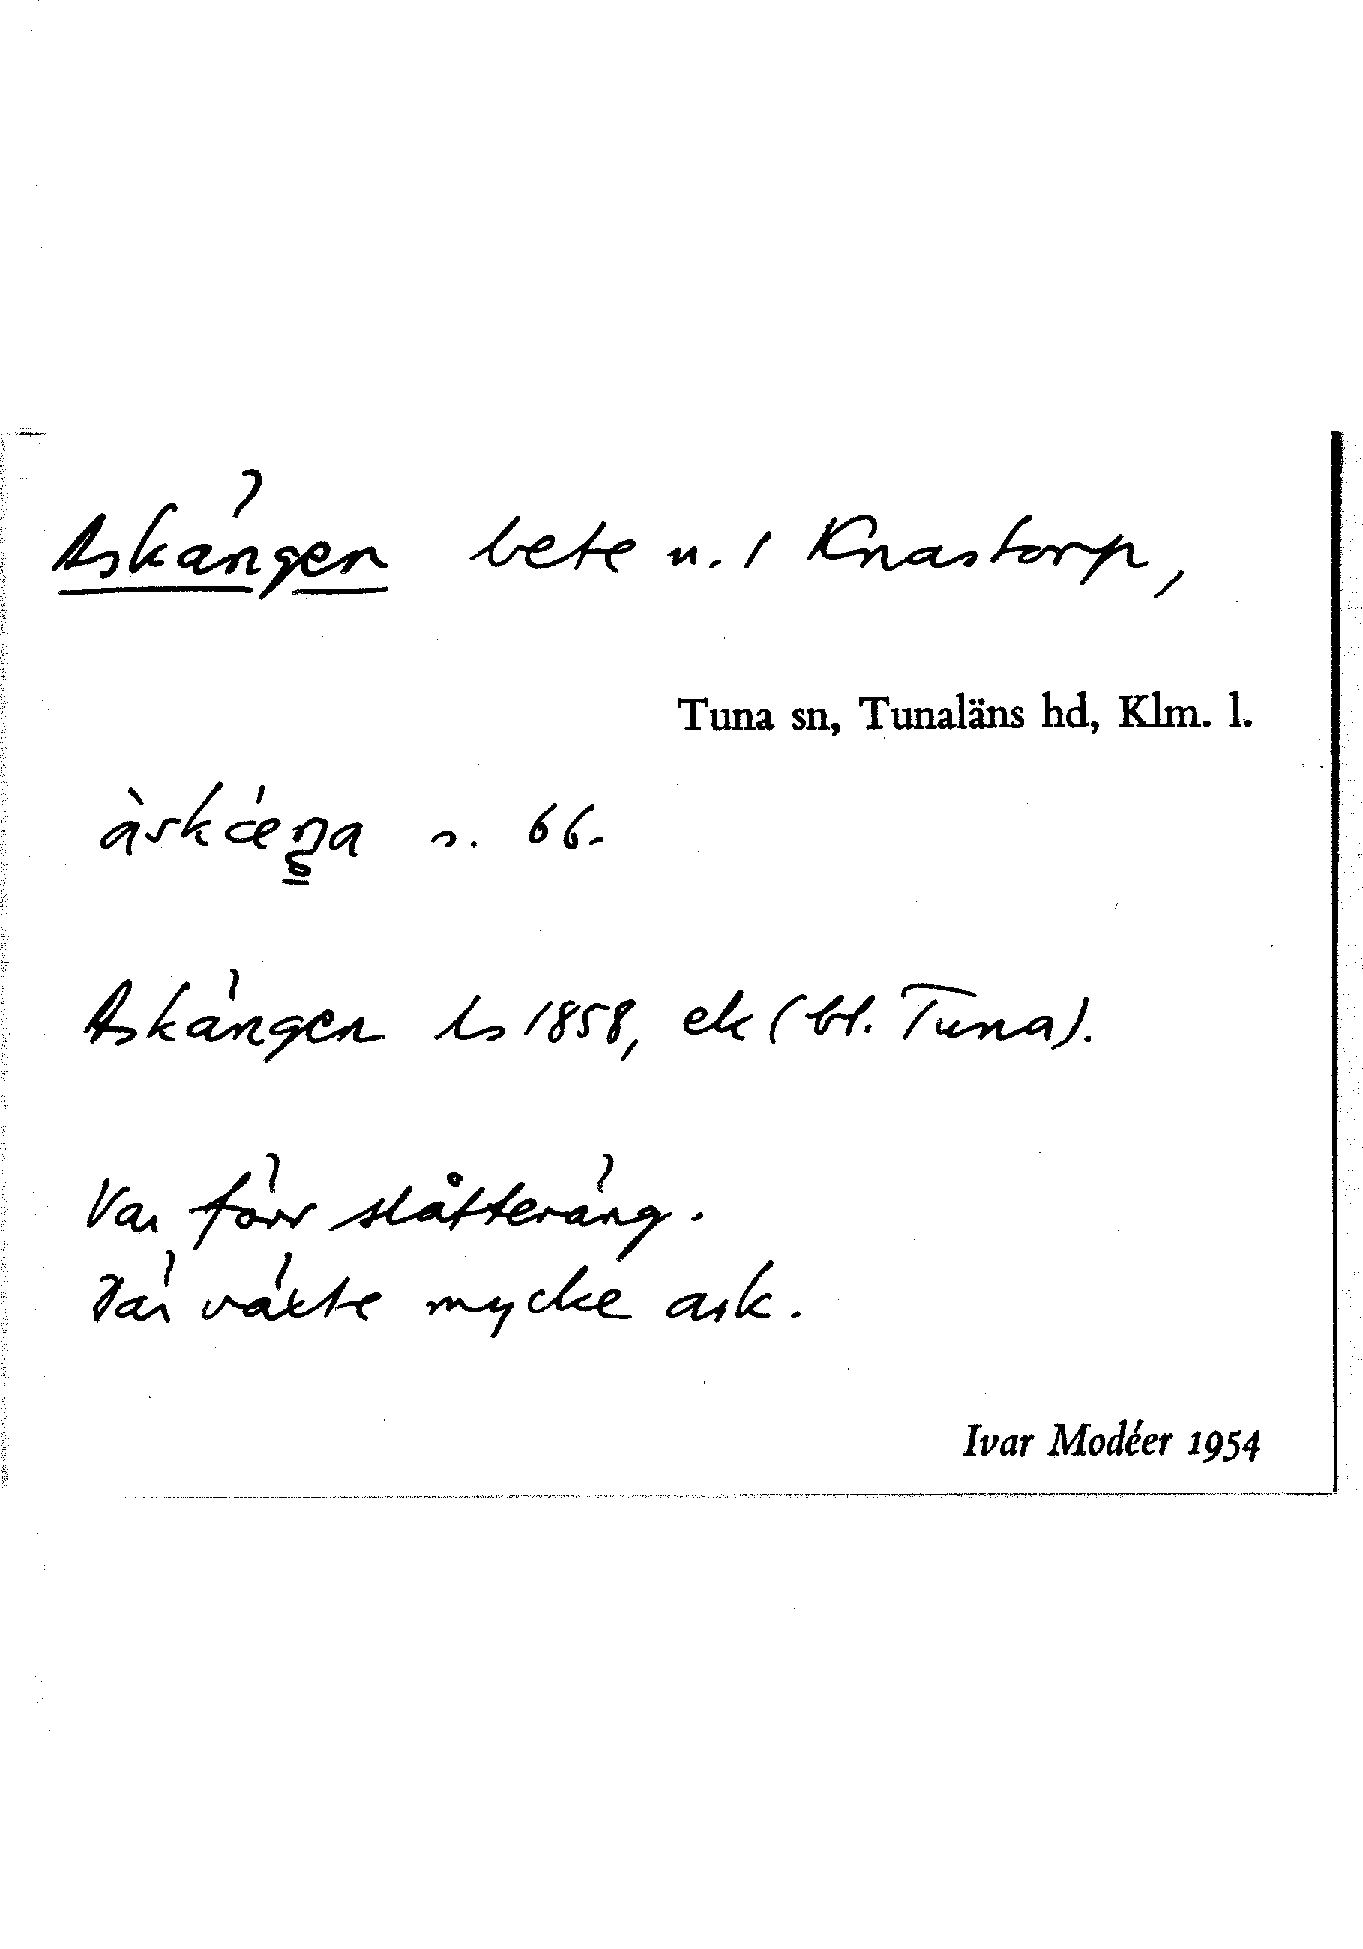 Askängen bete u. 1 Knastorp,
Tuna sn, Tunaläns hd, Klm. l.
s. 66.
Askängen ls 1858, ek (bl. Tuna).
Var förr slåtteräng.
Där växte mycke ask.
Ivar Modéer 1954